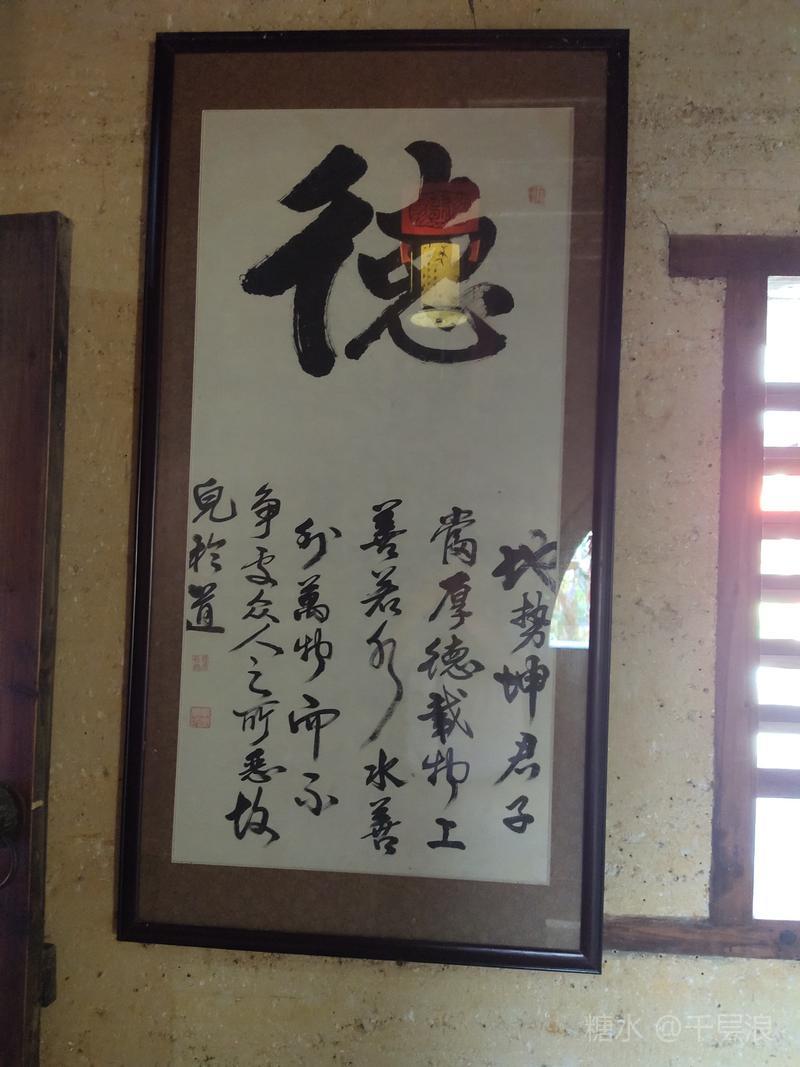 德
地势坤君子
當厚德載物上
善若水水善
利萬物而不
争处众人之所恶故
兒於道
糖水 @千层浪